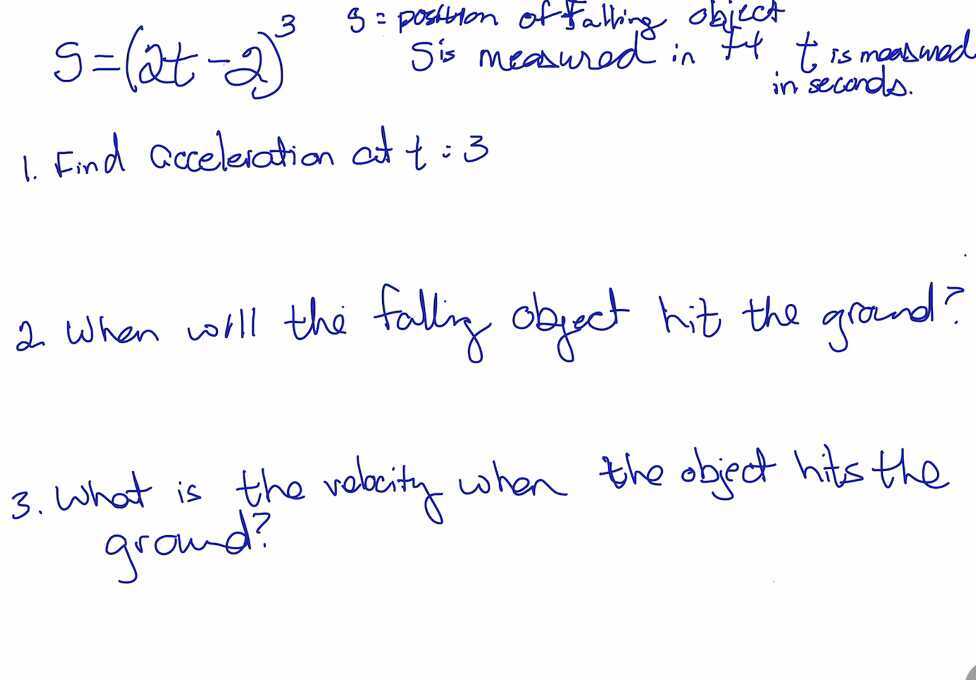 S=(2t-2)³
S = position of falling object
S is measured in ft t is measured
in seconds.
1. Find acceleration at t = 3
2. When will the falling object hit the ground?
3. What is the velocity when the object hits the
ground?